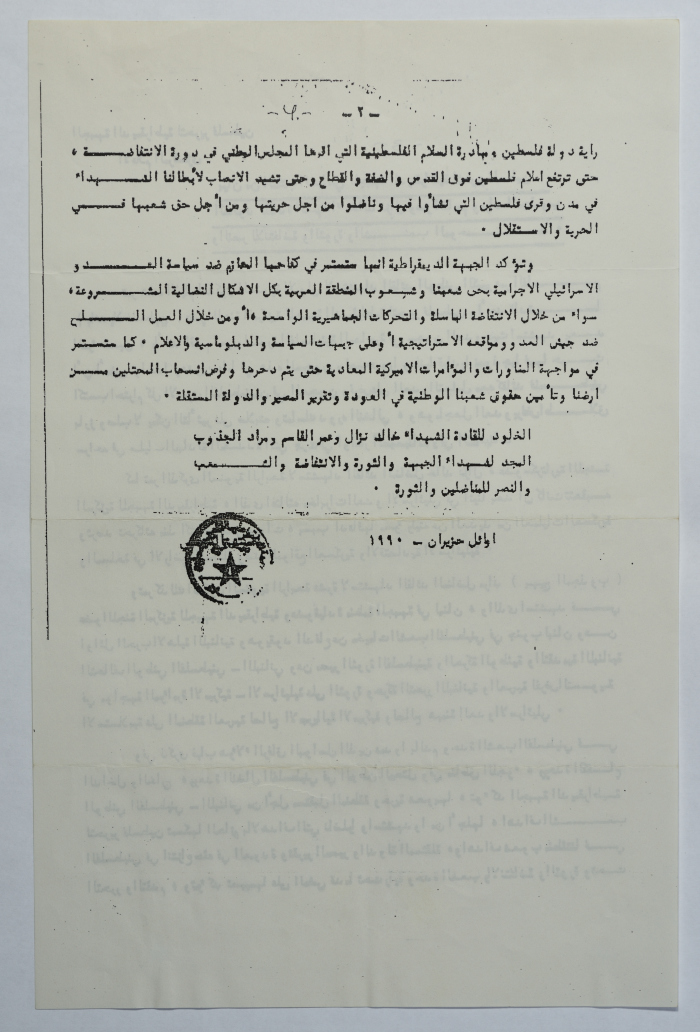 - ٢ -
راية دولة فلسطين ومبادرة السلام الفلسطينية التي اقرها المجلس الوطني في دورة الانتفاضـــــة ،
حتى ترتفع اعلام فلسطين فوق القدس والضفة والقطاع وحتى تشيد الانصاب لأبطالنا الشـــهداء
في مدن وقرى فلسطين التي نشأوا فيها وناضلوا من اجل حريتها ومن أجل حق شعبها فـــــي
الحرية والاستقلال .
وتؤكد الجبهة الديمقراطية انها ستستمر في كفاحها الحازم ضد سياسة العـــــدو
الاسرائيلي الاجرامية بحق شعبنا وشعوب المنطقة العربية بكل الاشكال النضالية المشـــروعة ،
سواء من خلال الانتفاضة الباسلة والتحركات الجماهيرية الواسعة ، أو من خلال العمل المســـلح
ضد جيش العدو ومواقعه الاستراتيجية أو على جبهات السياسة والدبلوماسية والاعلام . كما ستستمر
في مواجهة المناورات والمؤامرات الاميركية المعادية حتى يتم دحرها وفرض انسحاب المحتلين مـــن
ارضنا وتأمين حقوق شعبنا الوطنية في العودة وتقرير المصير والدولة المستقلة .
الخلود للقادة الشهداء خالد نزال وعمر القاسم ومراد المجذوب
المجد لشهداء الجبهة والثورة والانتفاضة والشـــــعب
والنصر للمناضلين والثورة .
اوائل حزيران - ١٩٩٠